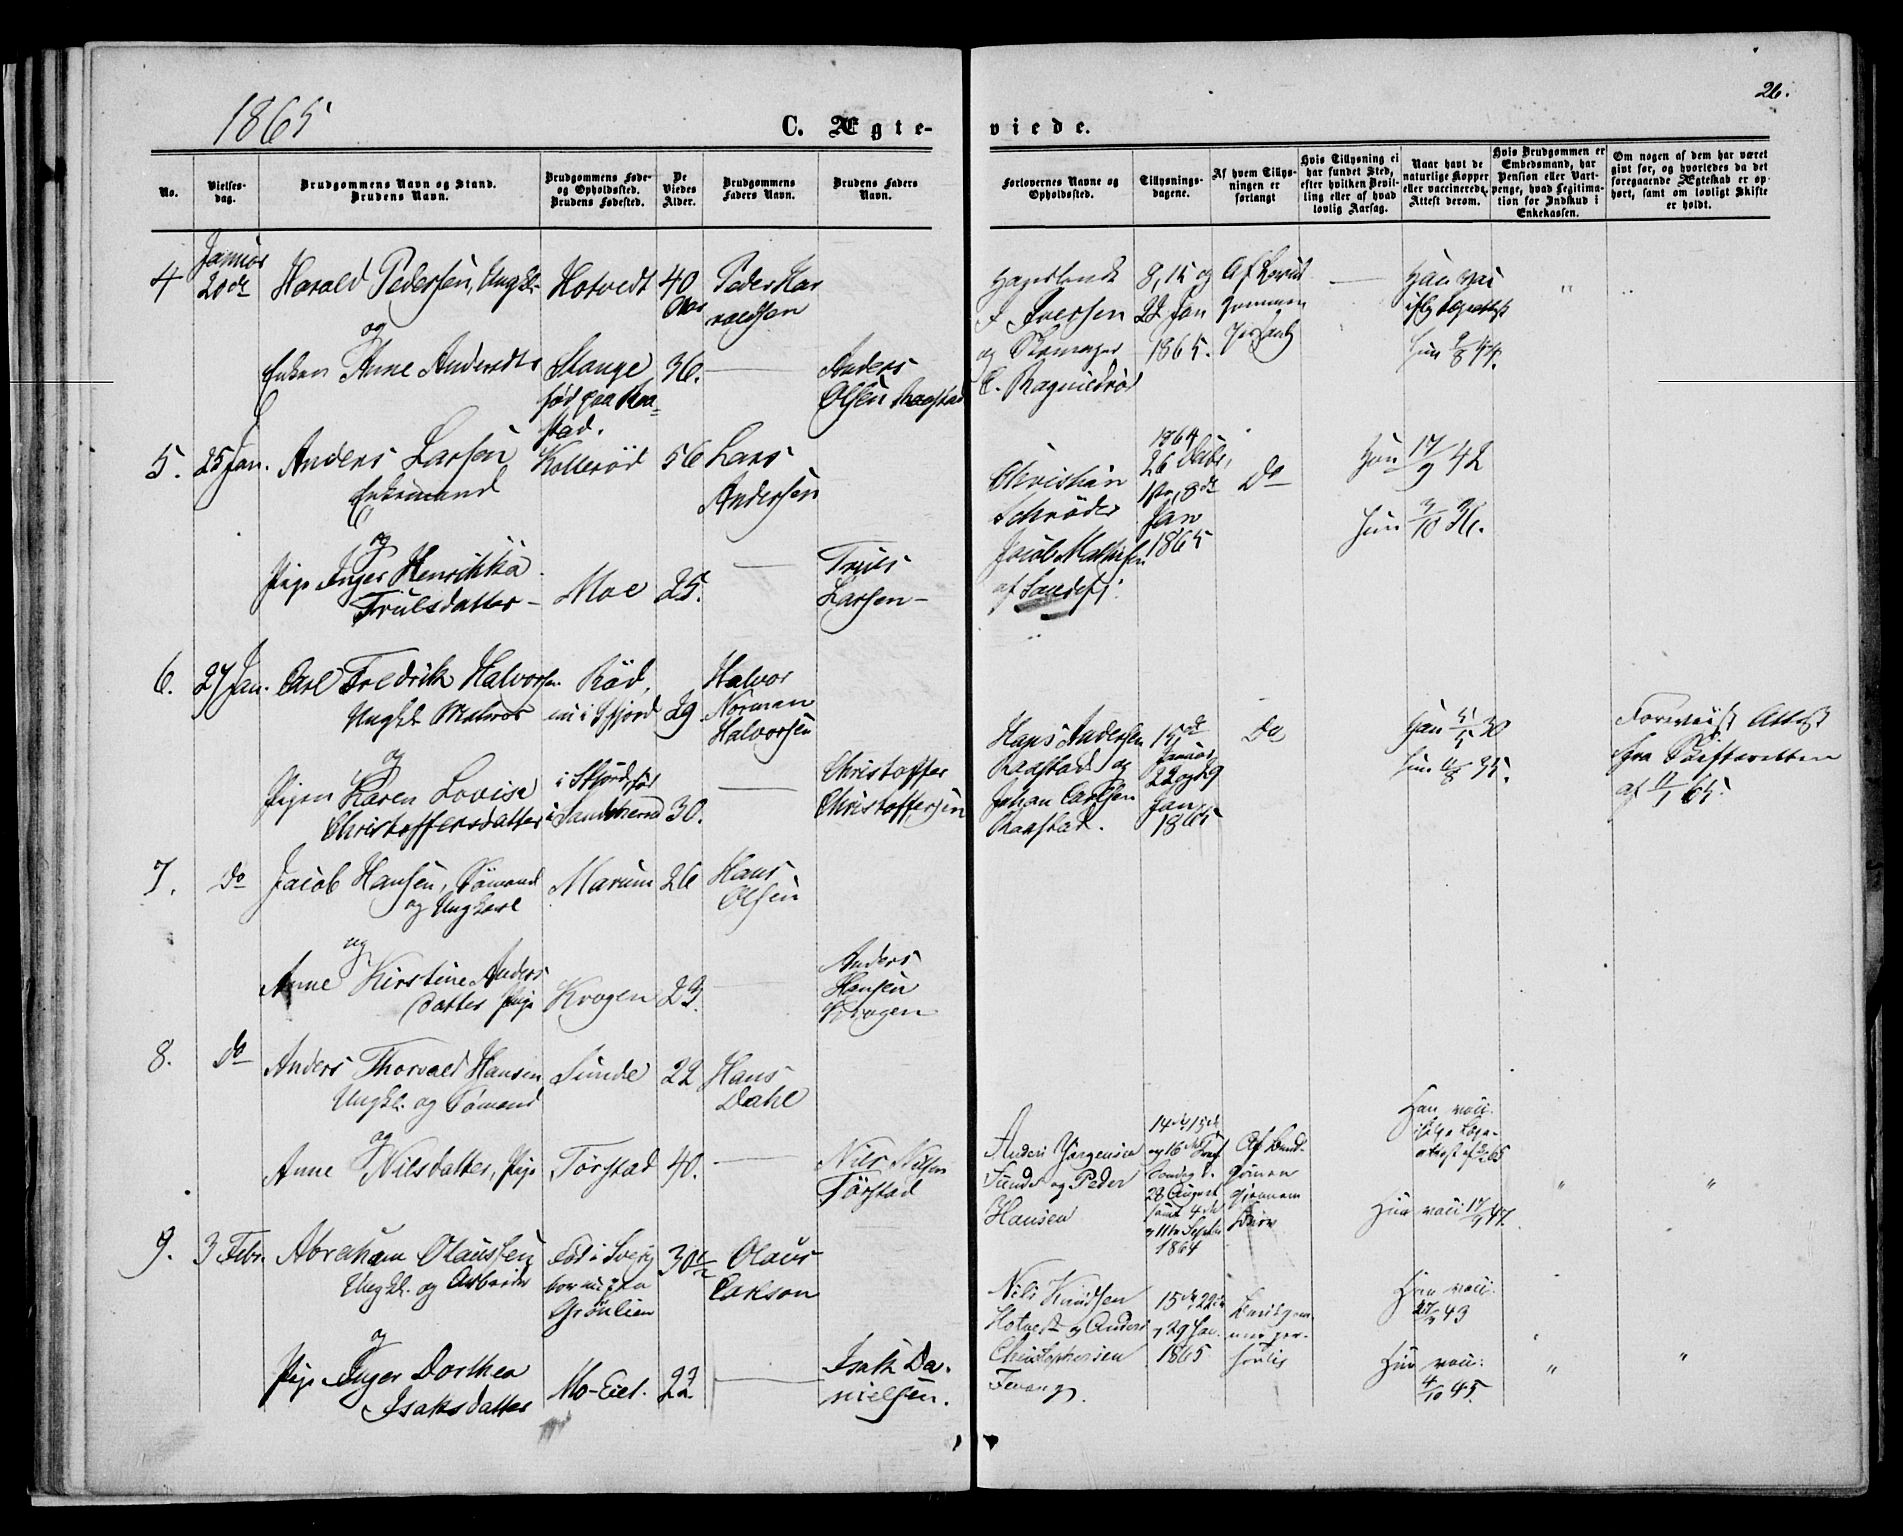 1865
C. Ægte-
viede.
26.
No.
Vielses-
dag.
Brudgommens Navn og Stand.
Brudens Navn.
Brudgommens Føde-
og Opholdssted.
Brudens Fødested.
De
Viedes
Alder.
Brudgommens
Faders Navn.
Brudens Faders
Navn.
Forlovernes Navne og
Opholdssted.
Tillysnings-
dagene.
Af hvem Tillys-
ningen er
forlangt
Hvis Tillysning ei
har fundet Sted,
efter hvilken Bevil-
ling eller af hvad
lovlig Aarsag.
Naar havt de
naturlige Kopper
eller vaccinerede.
Attest derom.
Hvis Brudgommen er
Embedsmand, har
Pension eller Vart-
penge, hvad Legitima-
tion for Indskud i
Enkekassen.
Om nogen af dem har været
givt før, og hvorledes da det
foregaaende Ægteskab er op-
hørt, samt om lovligt Skifte
er holdt.
4
Januar
20de
Harald Pedersen, Ungkl.
og
Enken Anne Andersdtr
Hotvedt
Stange
fød paa Raa-
stad.
40
36.
Peder Har
raldsen
Anders
Olsen Raastad
J. Iversen
og
8, 15 og
22 Jan
1865.
5.
25 Jan.
Anders Larsen
Enkemand
og
Pige Inger Henrikka
Trulsdatter
Kollerød
Moe
56
25.
Lars
Andersen
Truls
Larsen
Christian
Schrøder
Jacob Mathisen
af Sandefj.
1864
26 Decbr,
1ste, 8de
Jan
1865
Do
Han 17/9 42
Hun 3/10 36.
6.
27 Jan.
Carl Fredrik Halvorsen
Ungkl. Matros
og
Pigen Karen Lovise
Christoffersdatter
Rød,
nu i Sfjord
i Sfjord, fød
i Sandeherred
29
30.
Halvor
Norman
Halvorsen
Christoffer
Christoffersen
Hans Andersen
Raastad og
Johan Carlsen
Raastad.
15de
Januar
22 og 29
Jan.
1865
Do
Forevist Attest
fra Skifteretten
af 17/1 65
7.
Do
Jacob Hansen, Sømand
og Ungkarl
og
Anne Kirstine Anders
datter Pige
Marum
Krogen
26
23.
Hans
Olsen
Anders
Hansen
Krogen
8.
Do
Anders Thorvald Hansen
Ungkl. og Sømand
og
Anne Nilsdatter, Pige
Sunde
Tørstad
22
40.
Hans
Dahl
Nils Nilsen
Tørstad
Anders Jørgensen
Sunde og Peder
Hansen
28 August
samt 4de
og 11te Septbr
1864
Af Brud-
gommen
Han vacc.
Hun vacc. 17/9 47.
9.
3 Febr.
Abraham Olaussen
Ungkl. og Arbeider
og
Pige Inger Dorthea
Isaksdatter
Fød i Sverig
bor nu paa
Grønlien
Mo-Eiet.
30 1/2
22.
Olaus
Eakson
Isak Da-
nielsen.
Nils Knudsen
Hotvedt og Anders
Christophersen
Fevang.
15de, 22de
og 29 Jan.
1865
Brudgom-
men per-
sonlig
Han vacc.
Hun vacc.
4/10 45.